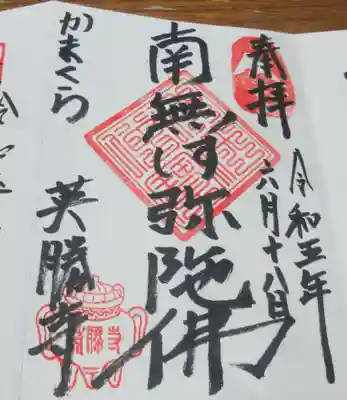 奉拝
令和五年
六月十八日
南無阿弥陀佛
かまくら
英勝寺